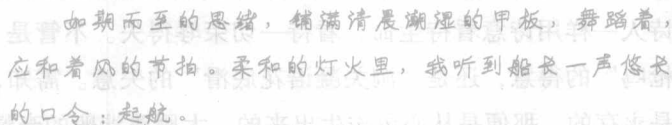 如期而至的思绪，铺满清晨潮湿的甲板，舞蹈着，
应和着风的节拍。柔和的灯火里，我听到船长一声悠长
的口令：起航。